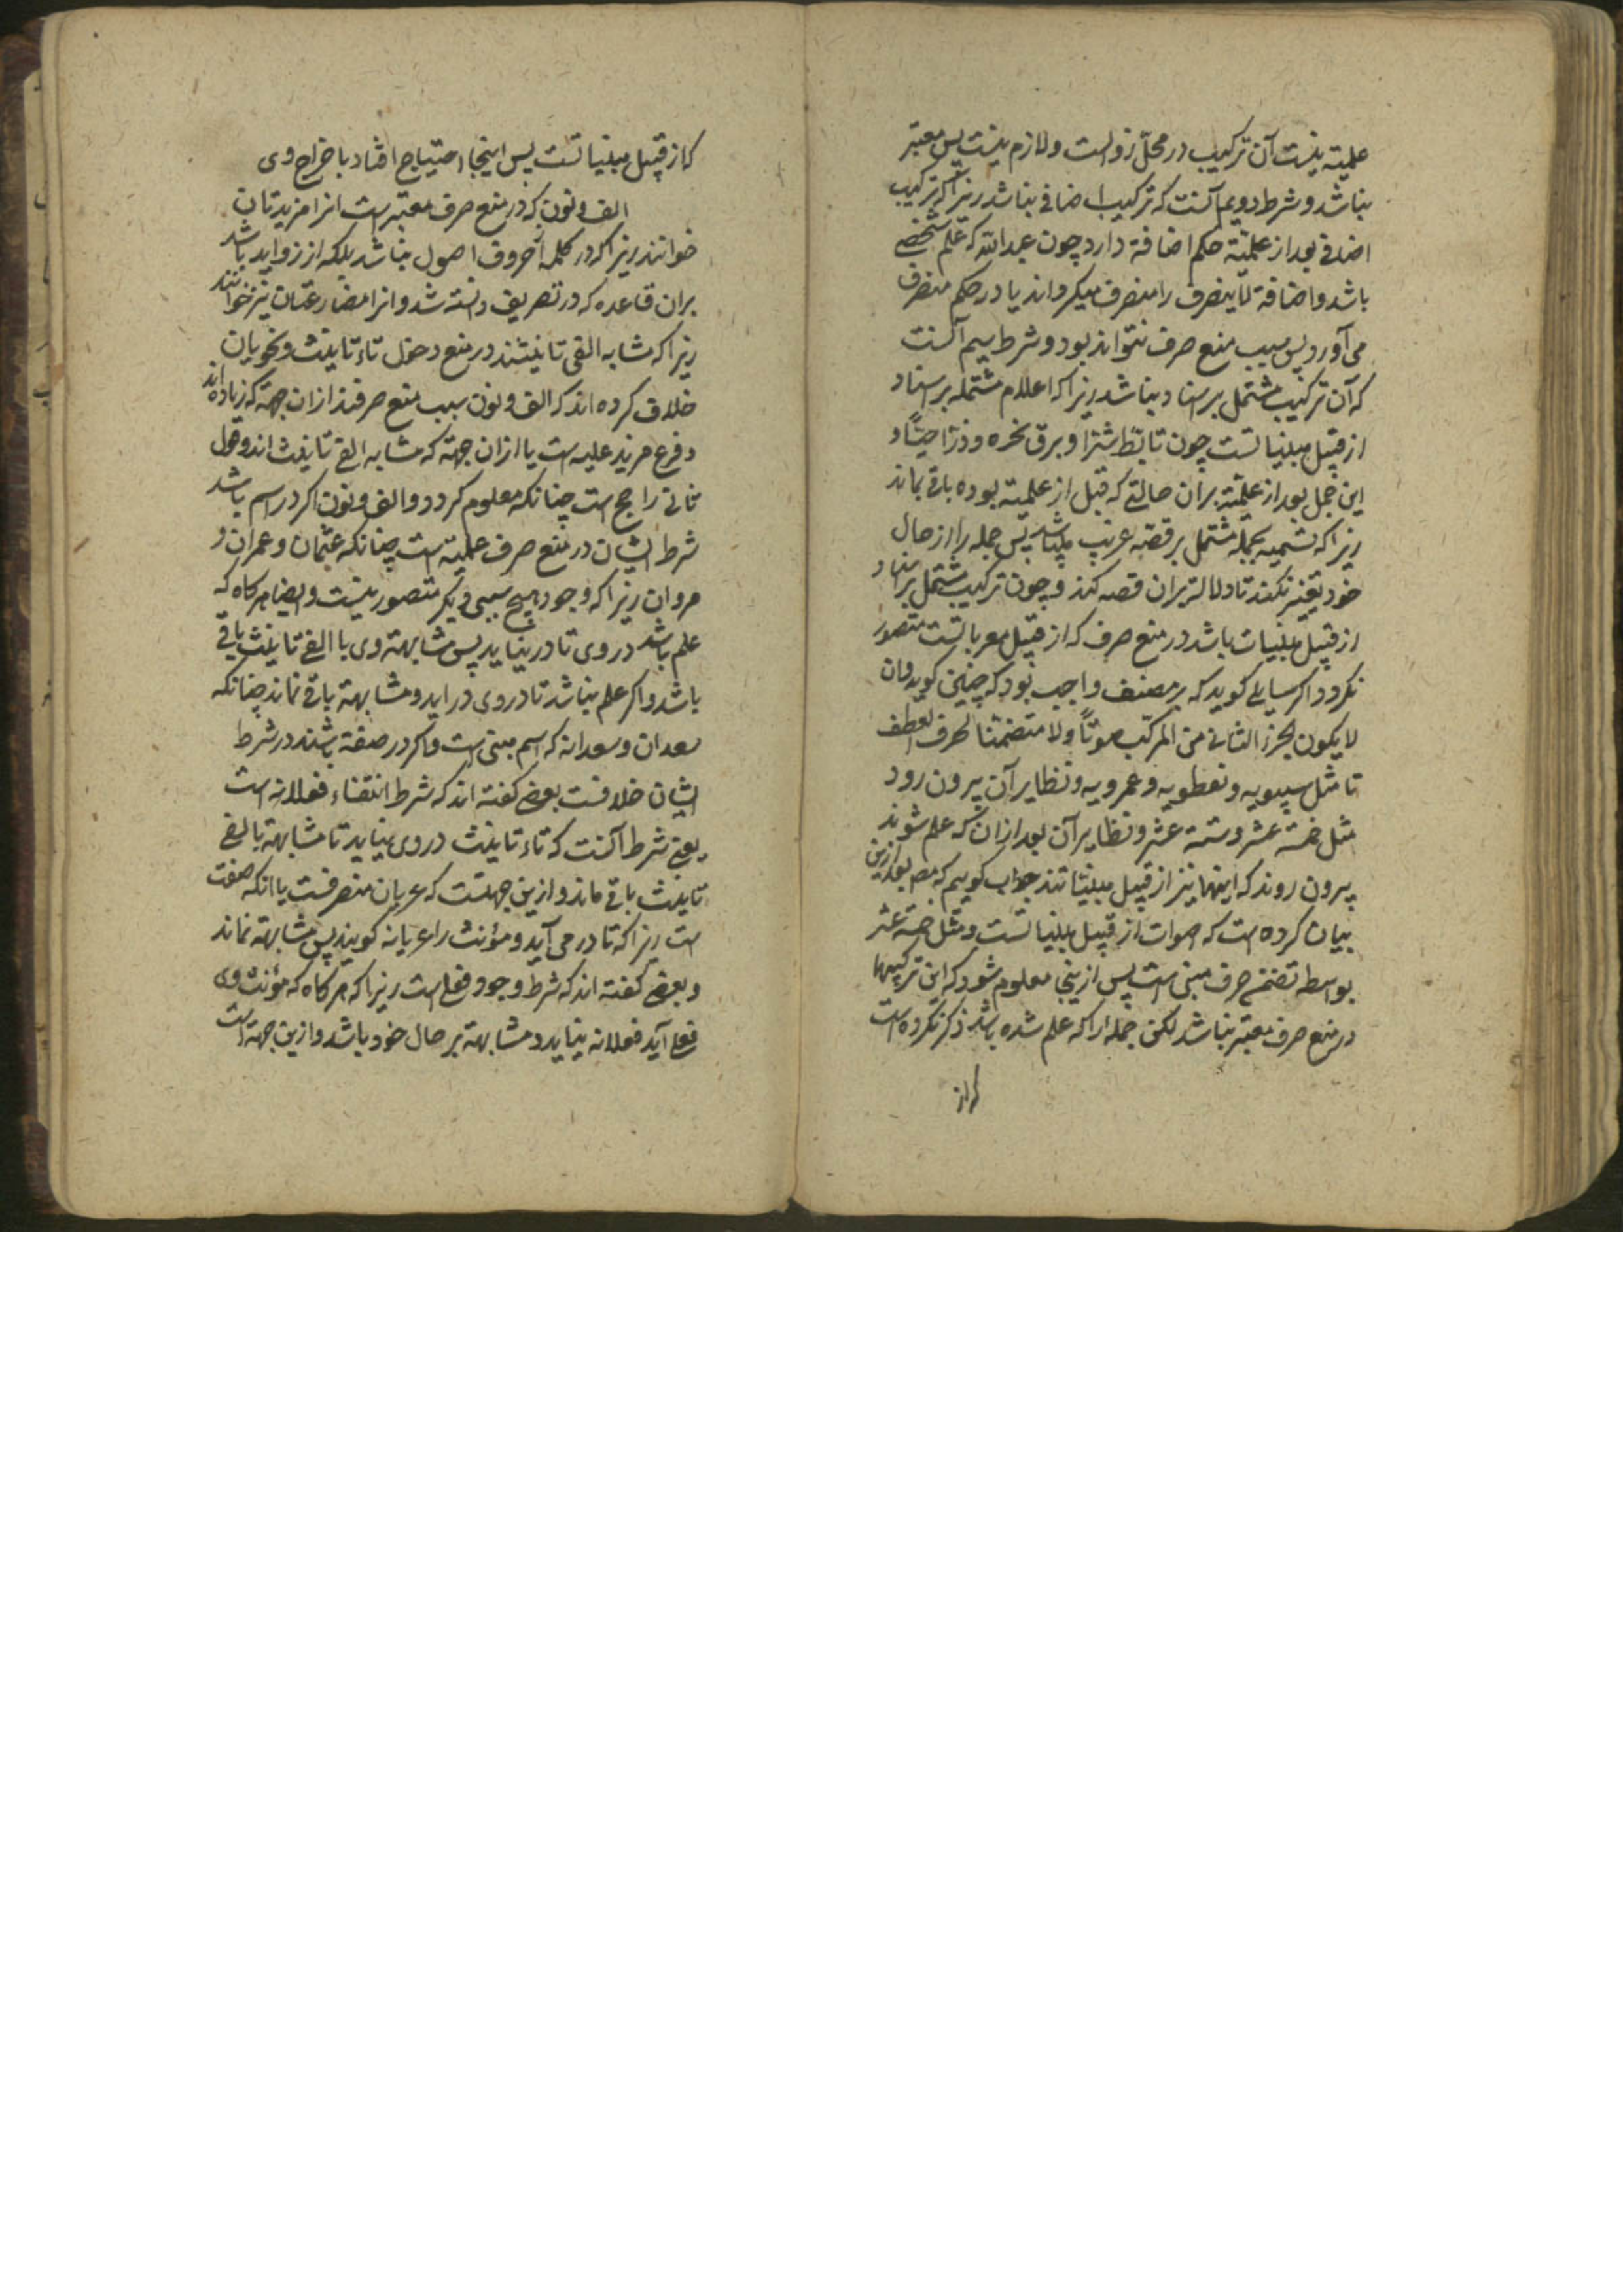 علمیته نیست آن ترکیب در محل زوالست و لازم نیست پس معتبر
نباشد و شرط دویم آنست که ترکیب اضافی نباشد زیرا که ترکیب
اضافی بعد از علمیته حکم اضافة دارد چون عبدالله که علم شخصی
باشد و اضافة لاینصرف را منصرف میکرداند یا در حکم منصرف
می آورد پس سبب منع صرف نتواند بود و شرط سیم آنست
که آن ترکیب مشتمل بر اسناد نباشد زیرا که اعلام مشتمله بر اسناد
از قبیل مبنیاتست چون تابّط شرّا و برق نحره و ذرّا حبّاً و
این جمل بعد از علمیّته بران حالتی که قبل از علمیته بوده باقی بماند
زیرا که تسمیه بجمله مشتمل بر قصّه غریب میباشد پس جمله را از حال
خود تغییر نکنند تا دلالت بران قصه کند و چون ترکیب مشتمل بر اسناد
از قبیل مبنیات باشد در منع صرف که از قبیل معرباتست متصور
نکردد اکر سایلی کوید که بر مصنف واجب بود که چنین کوید وان
لا یکون الجزء الثانی من المرکّب صوتاً ولا متضمّنا لحرف العطف
تا مثل سیبویه و نفطویه و عمرویه و نظایر آن بیرون رود
مثل خمسة عشر و ستة عشر و نظایر آن بعد از ان که علم شوند
بیرون روند که اینها نیز از قبیل مبنیّاتند جواب کوییم که مص بعد ازین
بیان کرده است که اصوات از قبیل مبنیاتست و مثل خمسة عشر
بواسطه تضمّن حرف مبنی است پس از ینجا معلوم شود که این ترکیبها
در منع صرف معتبر نباشد لکن جمله را که علم شده باشد ذکر نکرده است
که از
که از قبیل مبنیاتست پس اینجا احتیاج افتاد باخراج وی
الف و نون که در منع صرف معتبر است انرا مزیدتان
خوانند زیرا که در کلمه از حروف اصول نباشد بلکه از زواید باشد
بران قاعده که در تصریف دانسته شد و انرا مضارعتان نیز خوانند
زیرا که مشابه الفی تانیثند در منع دخول تاء تانیث و نحویان
خلاف کرده اند که الف و نون سبب منع صرفند از ان جهة که زیاده اند
و فرع مزید علیه است یا از ان جهة که مشابه الفی تانیث اند و قول
ثانی راجح است چنانکه معلوم کردد و الف و نون اکر در اسم باشد
شرط ایشان در منع صرف علمیّة است چنانکه عثمان و عمران و
مروان زیرا که وجود هیچ سببی دیکر متصور نیست و ایضا هر کاه که
علم باشد در وی تا در نیاید پس مشابهة وی با الفی تانیث باقی
باشد و اکر علم نباشد تا در وی در اید و مشابهة باقی نماند چنانکه
سعدان و سعدانه که اسم مبنی است و اکر در صفة باشند در شرط
ایشان خلافست بعضی کفته اند که شرط انتفاء فعلانه است
یعنی شرط آنست که تاء تانیث در وی نیاید تا مشابهة بالفی
تانیث باقی ماند و ازین جهتست که عریان منصرفست با انکه صفت
است زیرا که تا در می آید و مؤنث را عریانه کویند پس مشابهة نماند
و بعضی کفته اند که شرط وجود فعلی است زیرا که هر کاه که مؤنث وی
فعلی آید فعلانه نیاید و مشابهة بر حال خود باشد و ازین جهة است